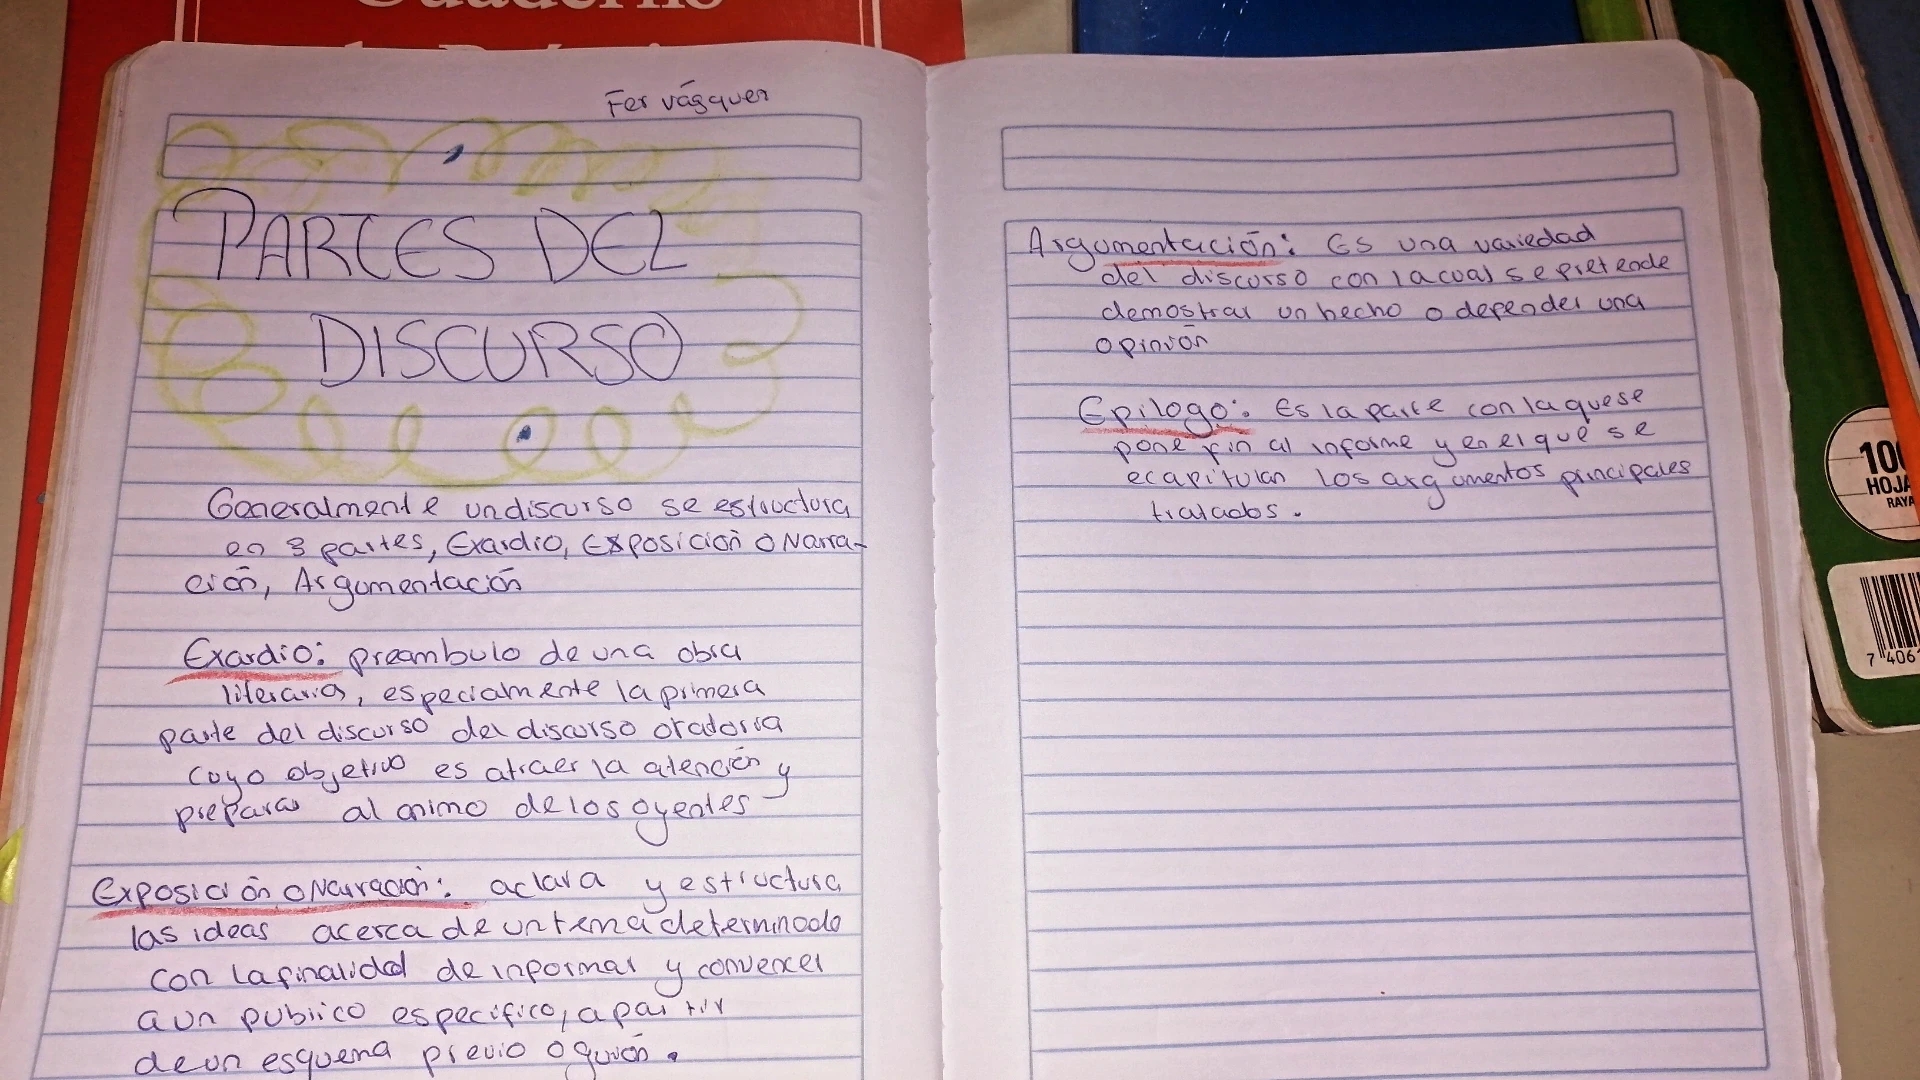 Cuaderno
Fer vázquez
PARTES DEL
DISCURSO
Generalmente un discurso se estructura
en 3 partes, Exardio, Exposición o Narra-
ción, Argumentación
Exardio: preambulo de una obra
literaria, especialmente la primera
parte del discurso del discurso oratoria
cuyo objetivo es atraer la atención y
preparar al animo de los oyentes
Exposición o Narración: aclara y estructura
las ideas acerca de un tema determinado
con la finalidad de informar y convencer
a un publico especifico, a partir
de un esquema previo o guión.
Argumentación: Es una variedad
del discurso con la cual se pretende
demostrar un hecho o defender una
opinión
Epilogo: Es la parte con la que se
pone fin al informe y en el que se
ecapitulan los argumentos principales
tratados.
100
HOJA
RAYA
7 406